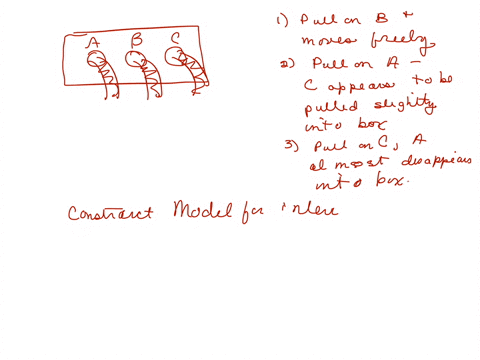 A B C
1) Pull on B +
moves freely
2) Pull on A -
C appears to be
pulled slightly
into box
3) Pull on C, A
almost disappears
into box.
Construct Model for